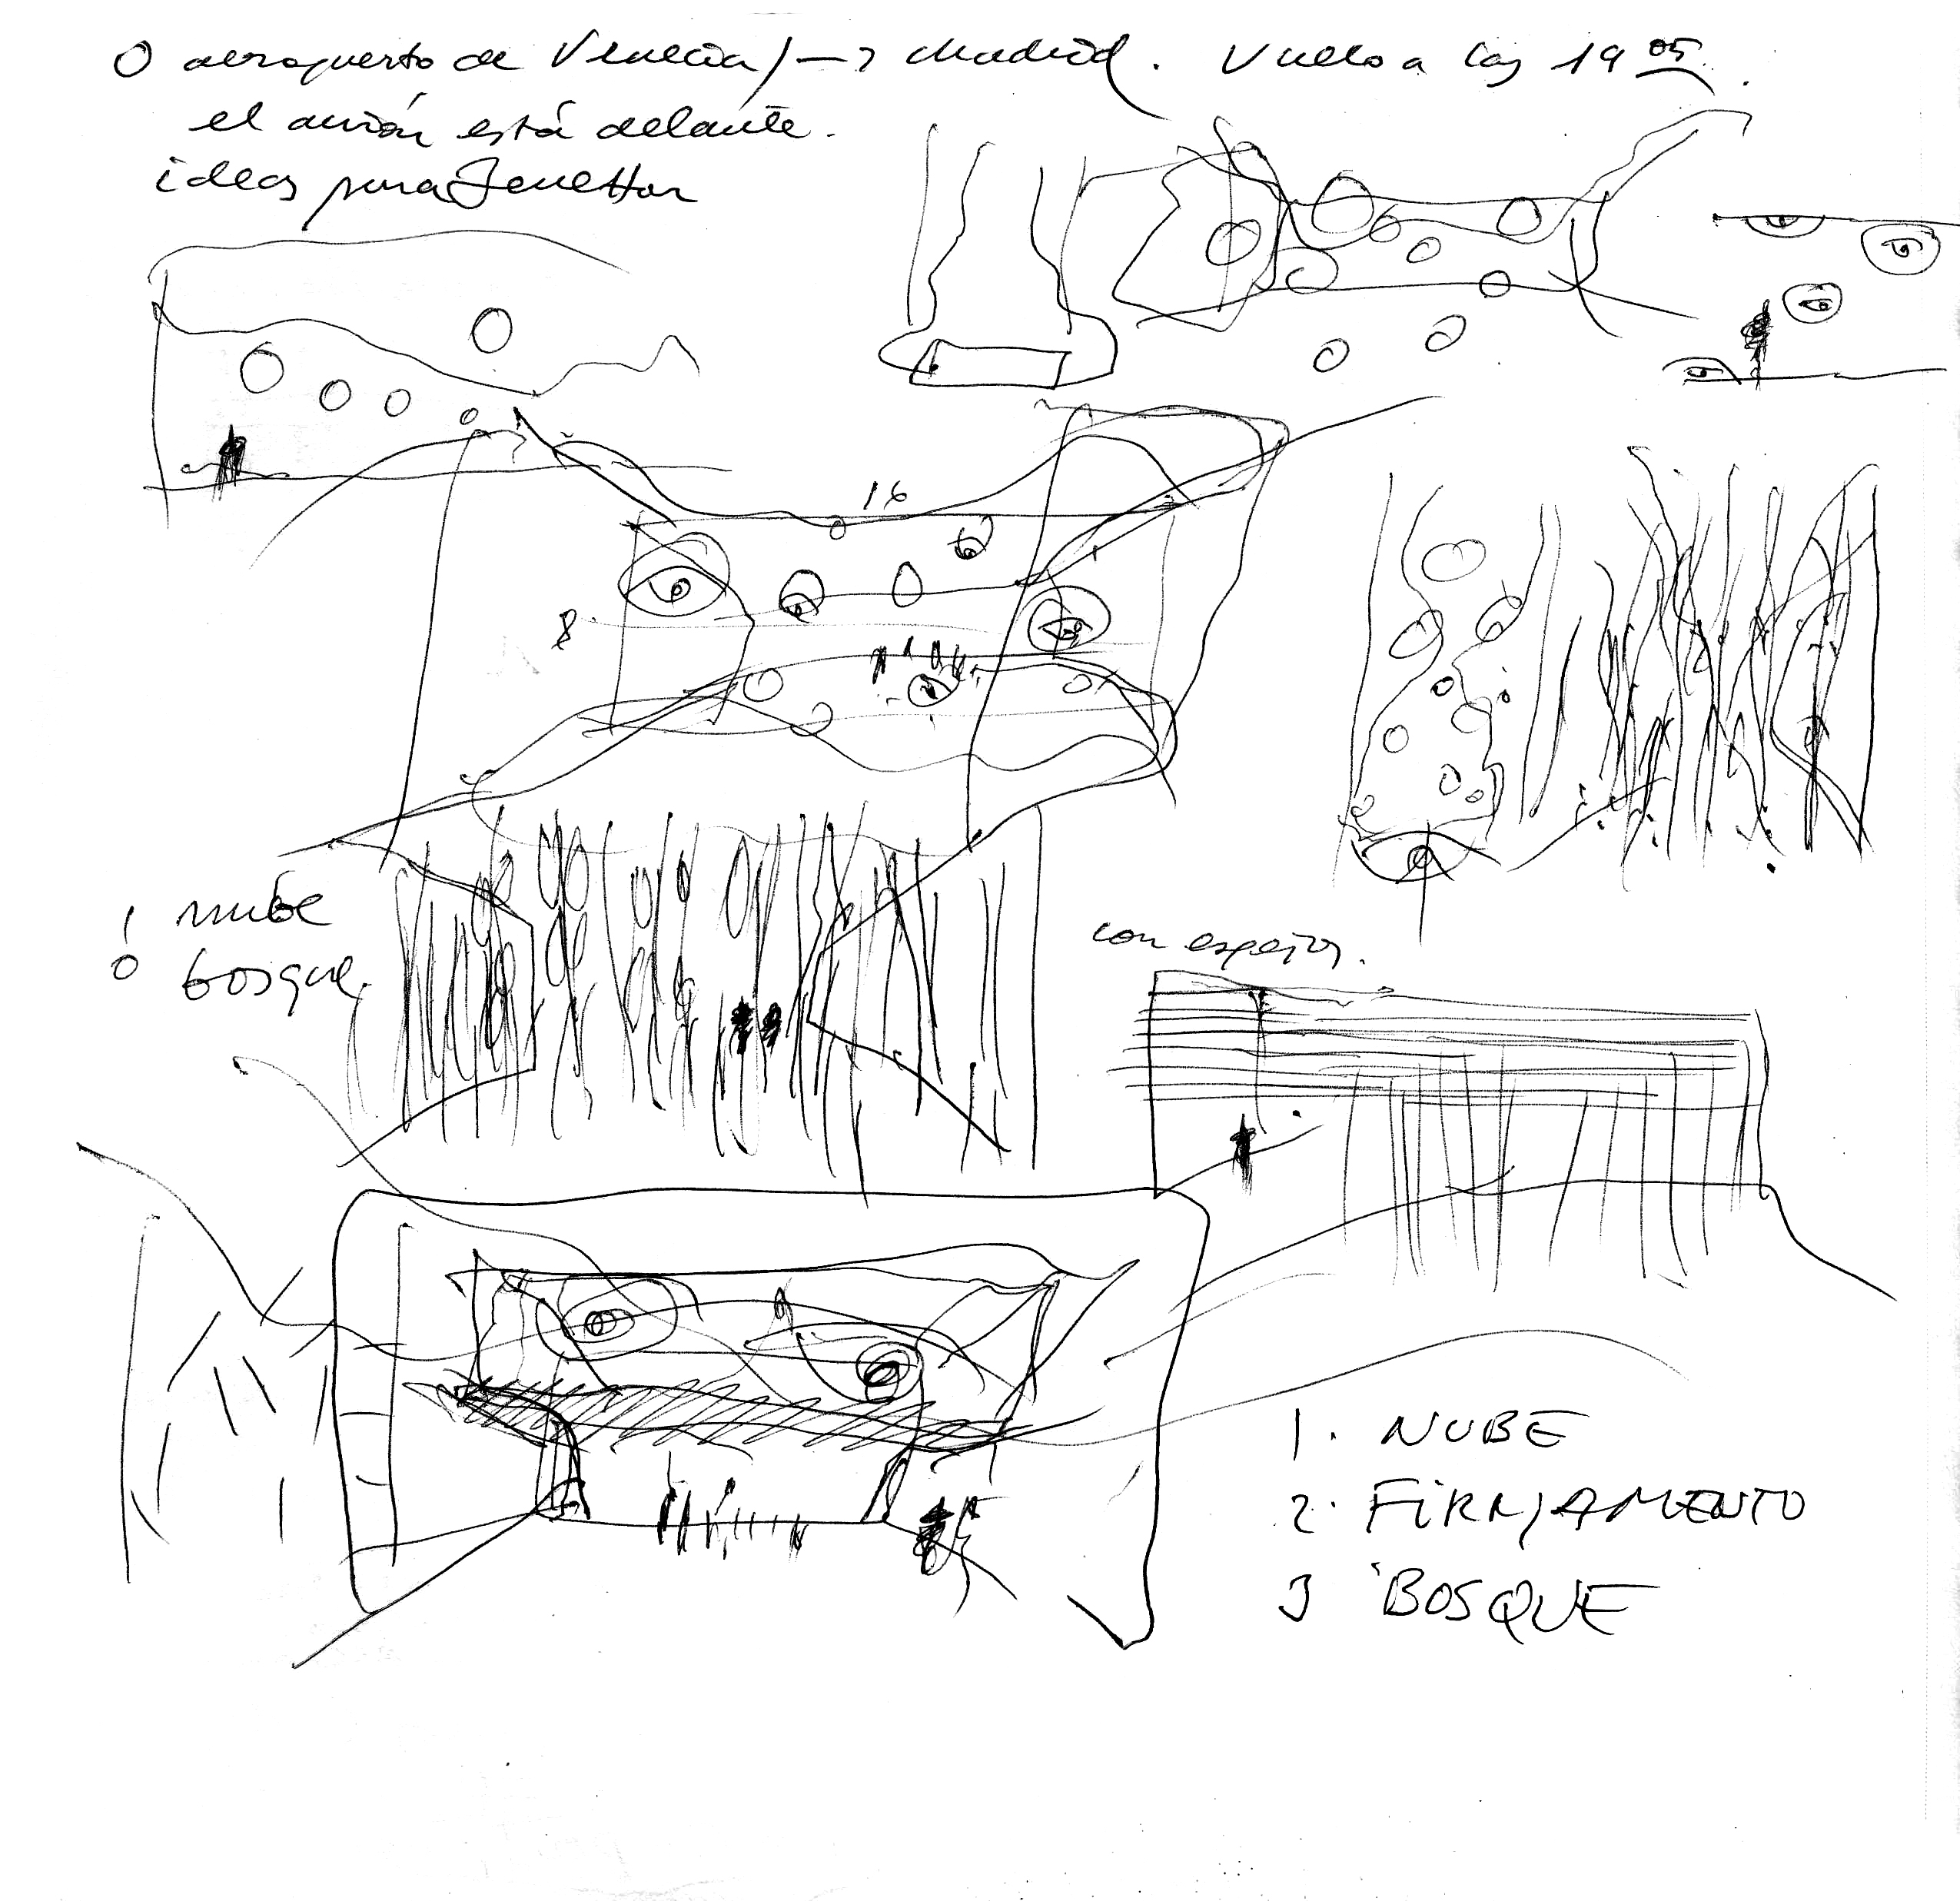 O aeropuerto de Venecia / → Madrid. Vuelo a las 19 05.
el avión está delante.
ideas para Benetton
16
8
1 nube
ó bosque
con espejos.
1. NUBE
2. FIRMAMENTO
3 BOSQUE